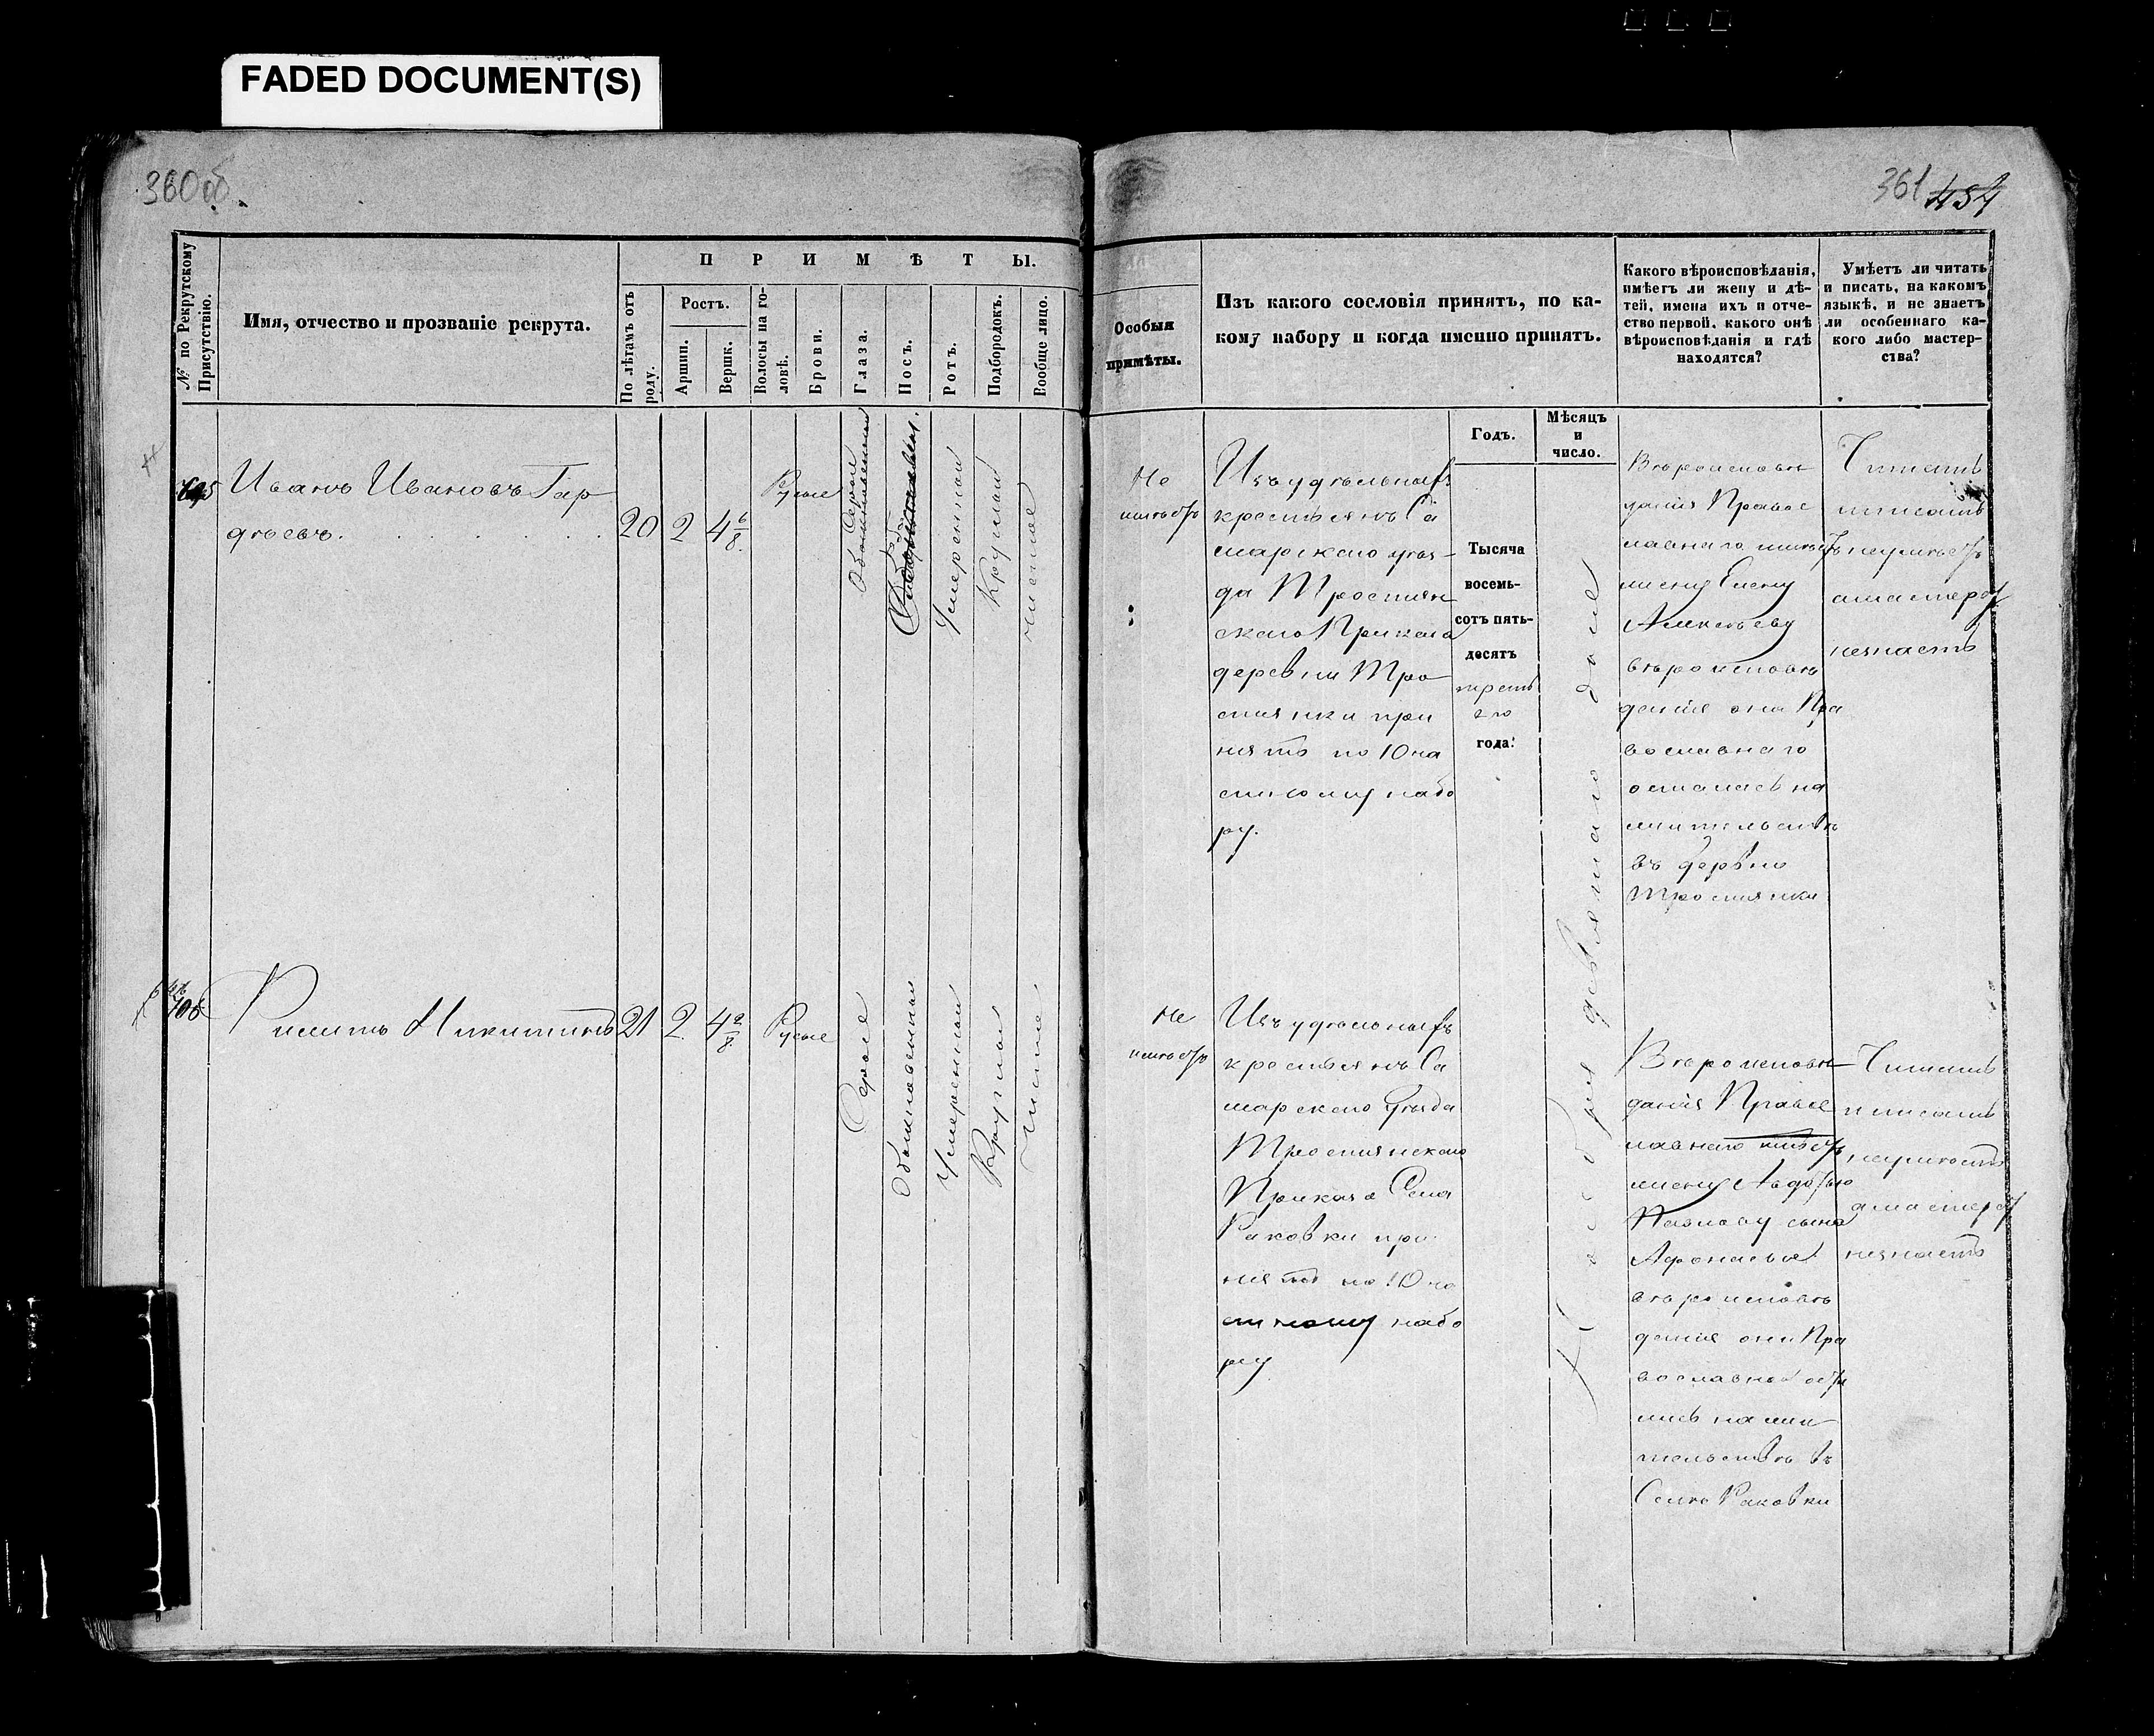 FADED DOCUMENT(S)
360 об.
361 454
№ по Рекрутскому
Присутствію.
Имя, отчество и прозваніе рекрута.
П Р И М Ѣ Т Ы.
По лѣтамъ отъ
роду.
Ростъ.
Аршин.
Вершк.
Волосы на го-
ловѣ.
Брови.
Глаза.
Носъ.
Ротъ.
Подбородокъ.
Вообще лицо.
Особыя
примѣты.
Изъ какого сословія принятъ, по ка-
кому набору и когда именно принятъ.
Какого вѣроисповѣданія,
имѣетъ ли жену и дѣ-
тей, имена ихъ и отче-
ство первой, какого онѣ
вѣроисповѣданія и гдѣ
находятся?
Умѣетъ ли читать
и писать, на какомъ
языкѣ, и не знаетъ
ли особеннаго ка-
кого либо мастер-
ства?
Годъ.
Мѣсяцъ
и
число.
Иванъ Ивановъ Гор
дѣевъ.
20
2
4 6/8.
Русые
Серые
Обыкновенный
Умеренный
Круглый
чистое
Не
имѣетъ
Изъ удѣльныхъ
крестьянъ Са
марскаго уѣз-
да Тростян
скаго Приказа
деревни Тро
стянки при
нятъ по 10 ча
стному набо
ру.
Тысяча
восемь-
сотъ пять-
десятъ
треть
его
года.
Ноября девятаго дня
Вѣроисповѣ
данія Правос
лавнаго имѣетъ
жену Елену
Алексѣеву
вѣроисповѣ
данія она Пра
вославнаго
осталась на
жительствѣ
въ деревнѣ
Тростянки
Читать
писать
неумѣетъ
амастерст.
незнаетъ
Филипъ Никитинъ
21
2.
4 2/8.
Русые
Серые
Обыкновенный
Умеренный
Круглый
Чистое
Не
имѣетъ
Изъ удѣльныхъ
крестьянъ Са
марскаго Уѣзда
Тростянскаго
Приказа Села
Раковки при
нятъ по 10 ча
стному набо
ру
Вѣроисповѣ
данія Правос
лавнаго имѣетъ
жену Авдотью
Павлову сына
Афонасья
вѣроисповѣ
данія они Пра
вославной оста
лись на жи
тельствѣ въ
Селѣ Раковки
Читать
писать
неумѣетъ
амастерст
незнаетъ